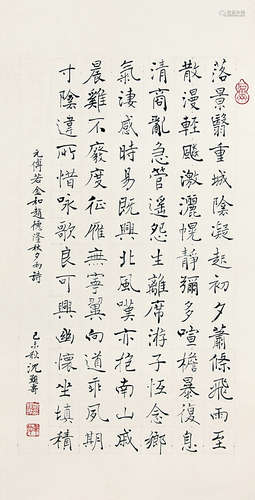 落景翳重城陰凝起初夕蕭條飛雨至
散漫輕飈激灑幌靜獮多喧檐暴復息
清商亂急管遥怨生離席游子恆念鄉
氣淒感時易既興北風嘆亦抱南山戚
晨雞不廢度征雁無寧翼向道乖夙期
寸陰違所惜咏歌良可興幽懷坐填積
元傅若金和趙穗隆秋夕雨詩
己未秋沈